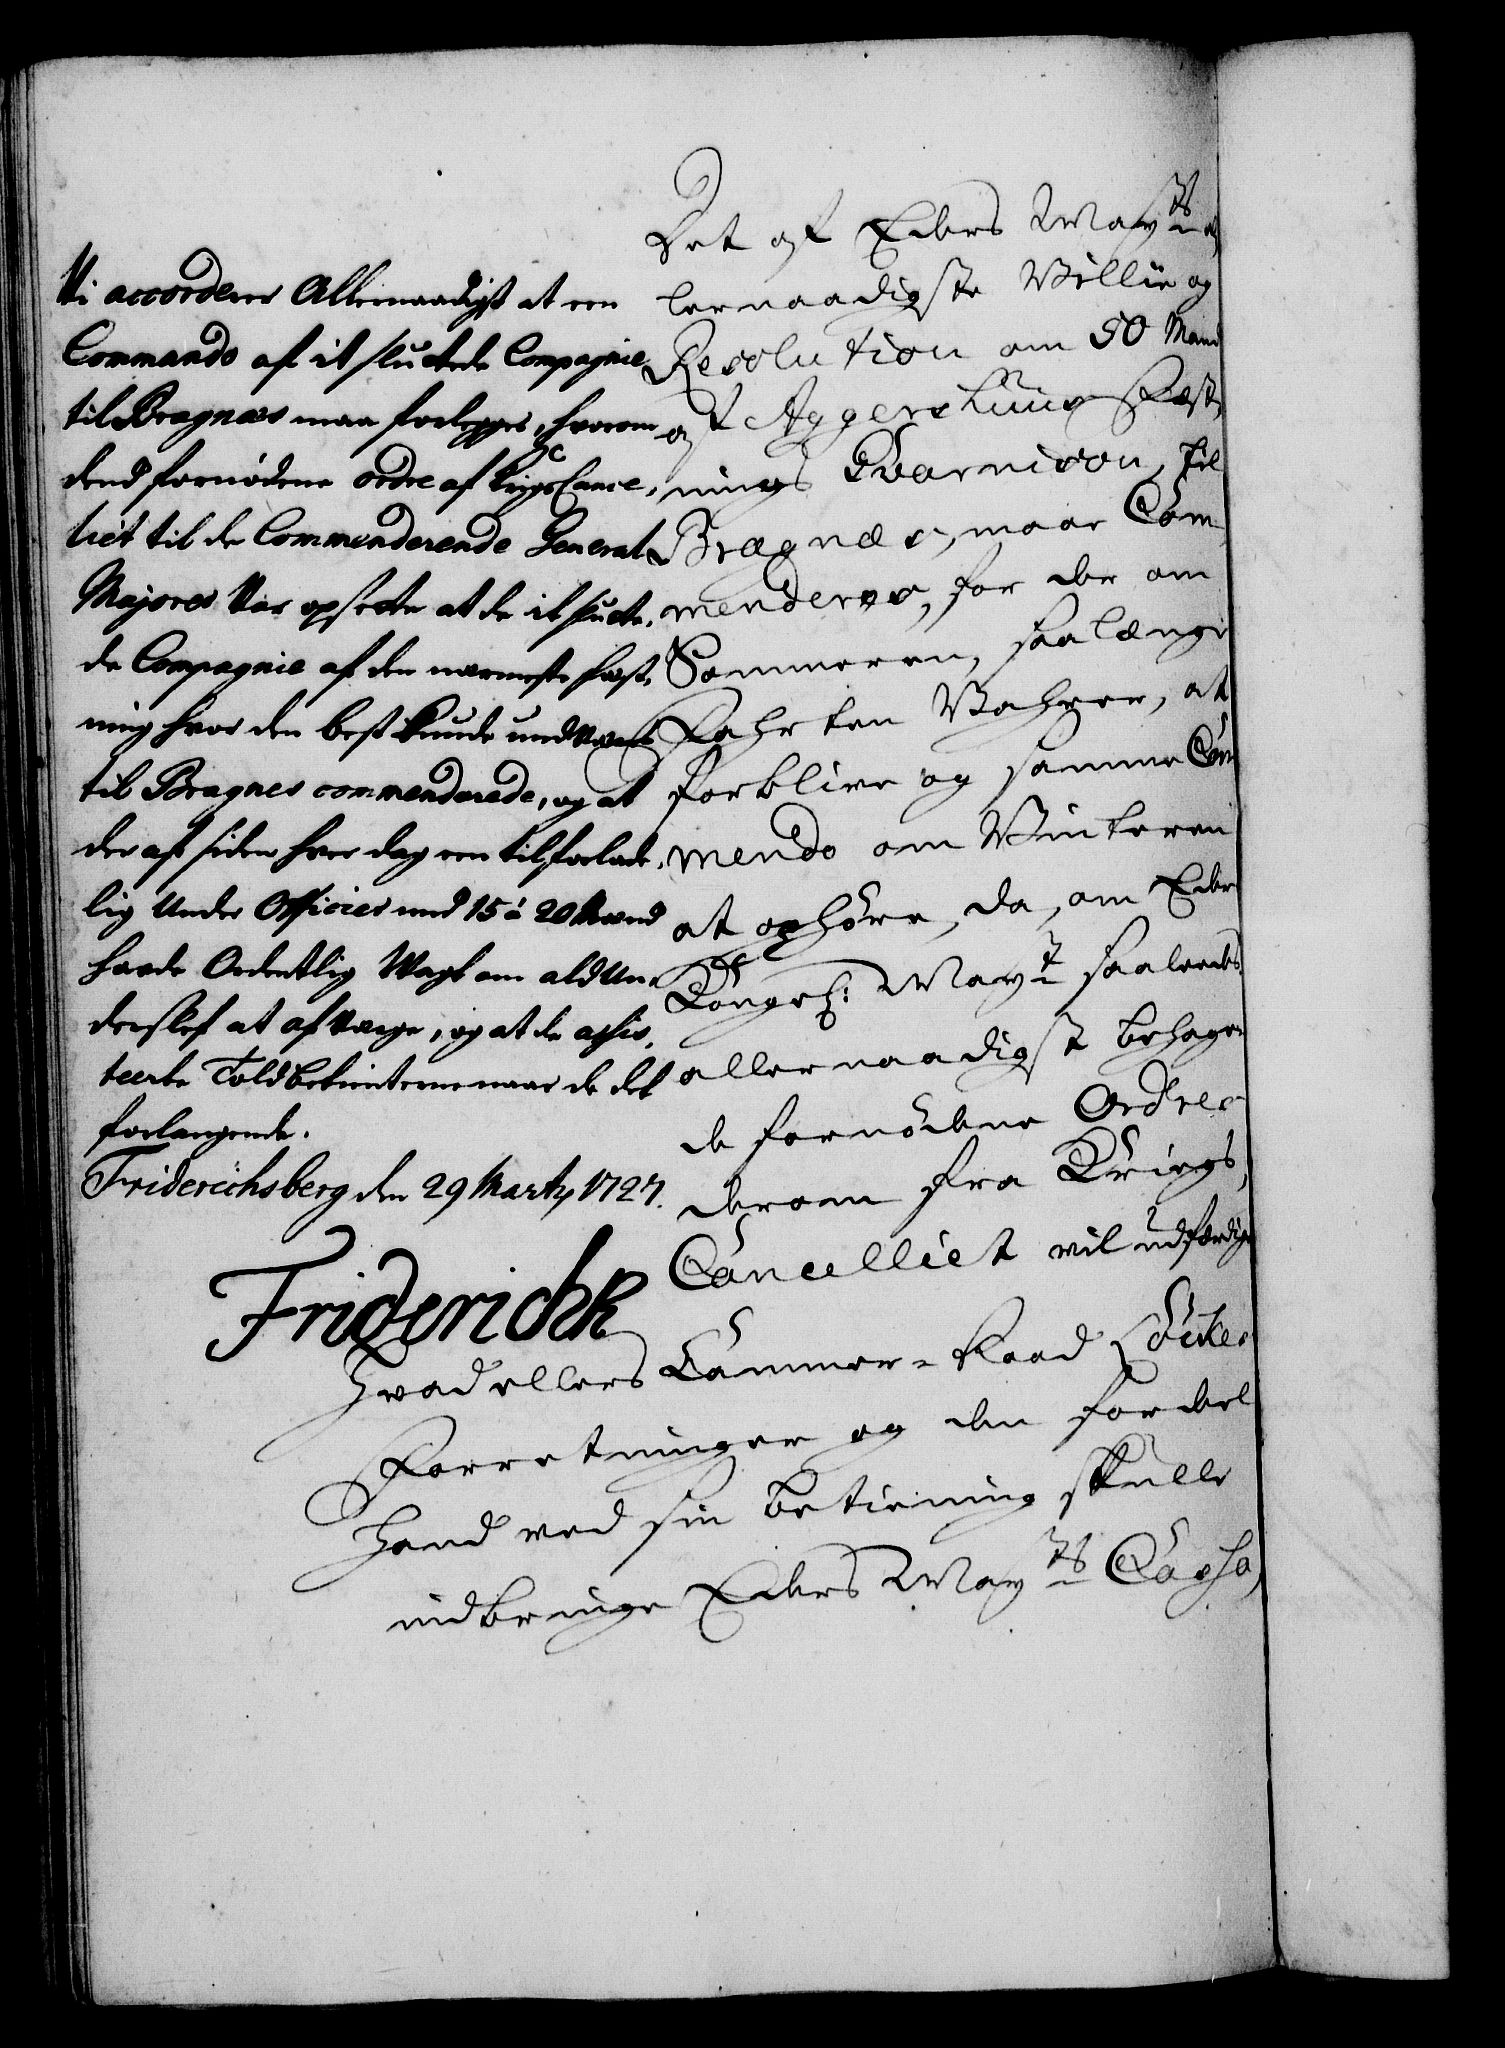 Vi accorderer Allernaadigst at een
Commando af it sluttede Compagnie
til Bragnæs maa forlegges, hvorom
dend fornødene ordre af Krigs Cance,
liet til de Commenderende General
Majorer var opsendte at de it slutte,
de Compagnie af den nærmeste fæst,
ning hvor den best kunde undvære
til Bragnes commenderede, og at
der af siden hver dag een tilforlade,
lig Under Officier med 15 à 20 Mand
havde Ordentlig Wagt om ald Un,
derslef at afværge, og at de assis,
teerte Toldbetienterne naar de det
forlangende.
Friderichsberg den 29 Marty 1727.
Friderich R
Det af Eders Mayts al,
lernaadigste Villie og
Resolution om 50 Mand
af Aggershuus Fæst,
nings Guarnison, til
Bragnæs, maae Com,
menderes, for der om
Sommeren, saa længe
Fahrten Vahrer, at
forblive og samme Com
mendo om Vinteren
at ophöre, da, om Eders
Kongel: Mayt saaleedes
allernaadigst behager
de fornödene Ordres
derom fra Krigs,
Cancelliet vil udfærdige
Hvad ellers Cammer-Raad Löikes
Forretninger og den fordeel
Hand ved sin betiening skulle
indbringe Eders Mayts Cassa,